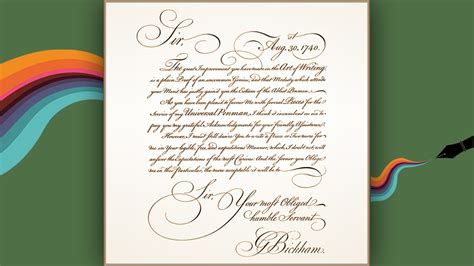 Sir,
Aug. 30. 1740.
The great Improvement you have made in the Art of Writing
is a plain Proof of an uncommon Genius; And that Modesty which attends
your Merit has justly gained you the Esteem of the Ablest Penmen.
As you have been pleased to favour Me with several Pieces for the
Service of my Universal Penman, I think it incumbent on me to
pay you my grateful Acknowledgments for your friendly Assistance.
However, I must still desire You to write a Piece or Two more
in your legible, free, and expeditious Manner, which I doubt not, will
answer the Expectations of the most Curious. And the sooner you Oblige
me in this Particular, the more acceptable it will be to
Sir,
Your most Obliged
humble Servant
G Bickham.